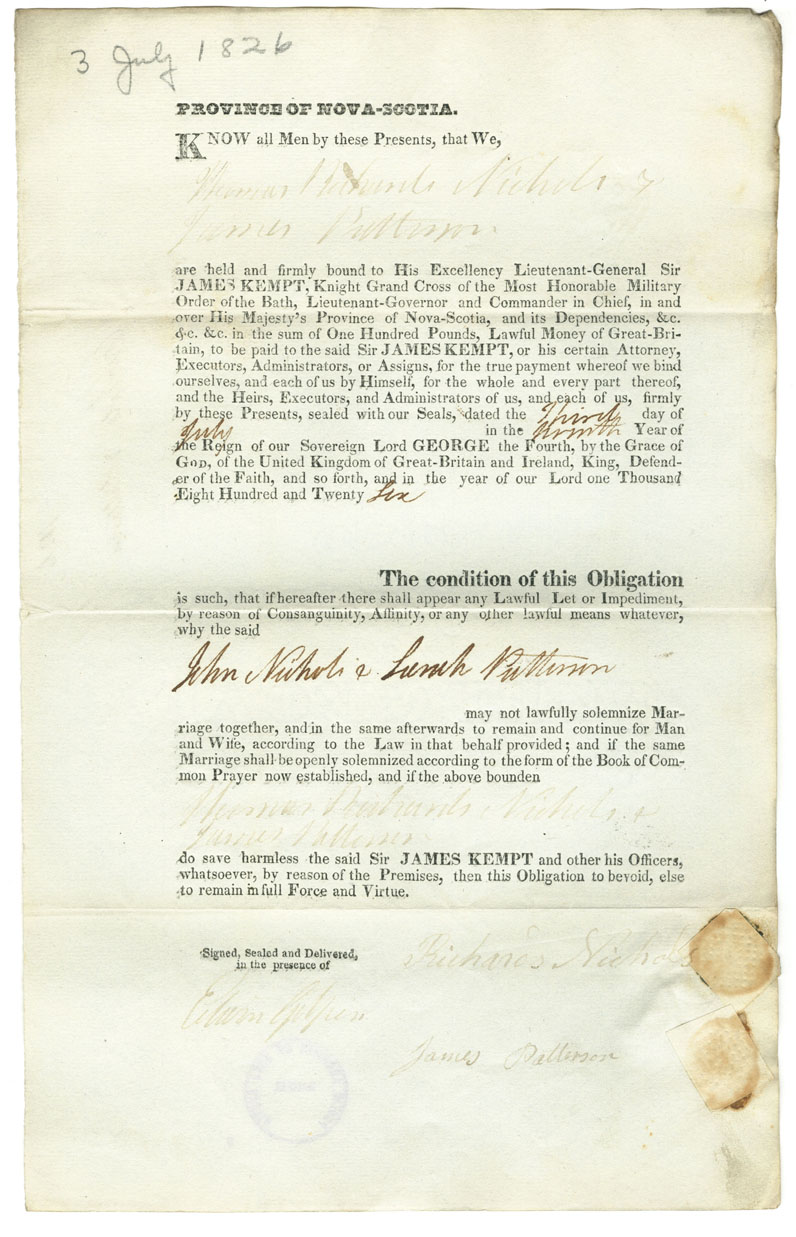 3 July 1826
PROVINCE OF NOVA-SCOTIA.
KNOW all Men by these Presents, that We,
Thomas Richards Nichols &
James Patterson
are held and firmly bound to His Excellency Lieutenant-General Sir
JAMES KEMPT, Knight Grand Cross of the Most Honorable Military
Order of the Bath, Lieutenant-Governor and Commander in Chief, in and
over His Majesty's Province of Nova-Scotia, and its Dependencies, &c.
&c. &c. in the sum of One Hundred Pounds, Lawful Money of Great-Bri-
tain, to be paid to the said Sir JAMES KEMPT, or his certain Attorney,
Executors, Administrators, or Assigns, for the true payment whereof we bind
ourselves, and each of us by Himself, for the whole and every part thereof,
and the Heirs, Executors, and Administrators of us, and each of us, firmly
by these Presents, sealed with our Seals, dated the Third day of
July in the Year of
the Reign of our Sovereign Lord GEORGE the Fourth, by the Grace of
GOD, of the United Kingdom of Great-Britain and Ireland, King, Defend-
er of the Faith, and so forth, and in the year of our Lord one Thousand
Eight Hundred and Twenty Six
The condition of this Obligation
is such, that if hereafter there shall appear any Lawful Let or Impediment,
by reason of Consanguinity, Affinity, or any other lawful means whatever,
why the said
John Nichols & Sarah Patterson
may not lawfully solemnize Mar-
riage together, and in the same afterwards to remain and continue for Man
and Wife, according to the Law in that behalf provided; and if the same
Marriage shall be openly solemnized according to the form of the Book of Com-
mon Prayer now established, and if the above bounden
Thomas Richards Nichols &
James Patterson
do save harmless the said Sir JAMES KEMPT and other his Officers,
whatsoever, by reason of the Premises, then this Obligation to be void, else
to remain in full Force and Virtue.
Signed, Sealed and Delivered,
in the presence of
Richards Nichols
James Patterson